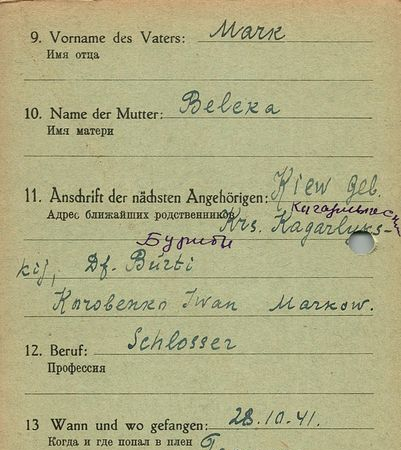 9. Vorname des Vaters: Mark
Имя отца
10. Name der Mutter: Beleka
Имя матери
11. Anschrift der nächsten Angehörigen: Kiew Geb.
Адрес ближайших родственников Krs. Kagarlyks-
Бурти
kij, Df. Burti
Korobenko Iwan Markow.
12. Beruf: Schlosser
Профессия
13 Wann und wo gefangen: 28.10.41.
Когда и где попал в плен